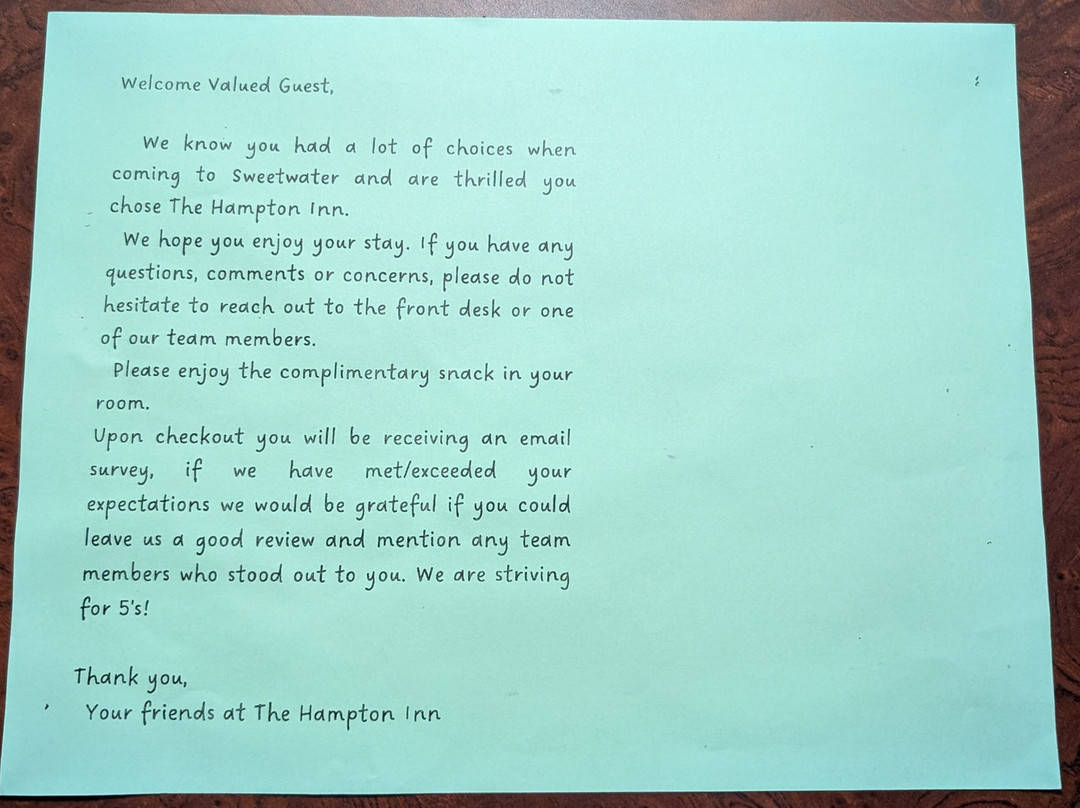 Welcome Valued Guest,
We know you had a lot of choices when
coming to Sweetwater and are thrilled you
chose The Hampton Inn.
We hope you enjoy your stay. If you have any
questions, comments or concerns, please do not
hesitate to reach out to the front desk or one
of our team members.
Please enjoy the complimentary snack in your
room.
Upon checkout you will be receiving an email
survey, if we have met/exceeded your
expectations we would be grateful if you could
leave us a good review and mention any team
members who stood out to you. We are striving
for 5's!
Thank you,
Your friends at The Hampton Inn